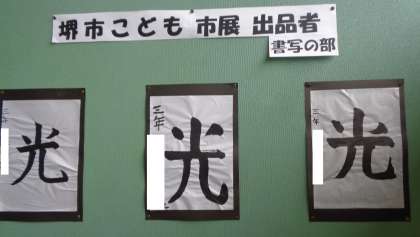 堺市こども 市展 出品者
書写の部
三年
光
三年
光
三年
光